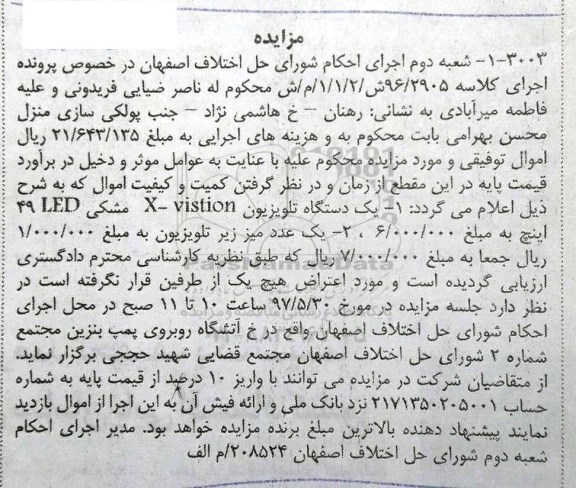 مزایده
۱-۳۰۰۳- شعبه دوم اجرای احکام شورای حل اختلاف اصفهان در خصوص پرونده
اجرای کلاسه ۹۶/۲۹۰۵ش/۱/۱/۲/م/ش محکوم له ناصر ضیایی فریدونی و علیه
فاطمه میرآبادی به نشانی: رهنان – خ هاشمی نژاد – جنب پولکی سازی منزل
محسن بهرامی بابت محکوم به و هزینه های اجرایی به مبلغ ۲۱/۶۴۳/۱۳۵ ریال
اموال توقیفی و مورد مزایده محکوم علیه با عنایت به عوامل موثر و دخیل در برآورد
قیمت پایه در این مقطع از زمان و در نظر گرفتن کمیت و کیفیت اموال که به شرح
ذیل اعلام می گردد: ۱- یک دستگاه تلویزیون X- vistion مشکی LED ۴۹
اینچ به مبلغ ۶/۰۰۰/۰۰۰ ، ۲- یک عدد میز زیر تلویزیون به مبلغ ۱/۰۰۰/۰۰۰
ریال جمعا به مبلغ ۷/۰۰۰/۰۰۰ ریال که طبق نظریه کارشناسی محترم دادگستری
ارزیابی گردیده است و مورد اعتراض هیچ یک از طرفین قرار نگرفته است در
نظر دارد جلسه مزایده در مورخ ۹۷/۵/۳۰ ساعت ۱۰ تا ۱۱ صبح در محل اجرای
احکام شورای حل اختلاف اصفهان واقع در خ آتشگاه روبروی پمپ بنزین مجتمع
شماره ۲ شورای حل اختلاف اصفهان مجتمع قضایی شهید حججی برگزار نماید.
از متقاضیان شرکت در مزایده می توانند با واریز ۱۰ درصد از قیمت پایه به شماره
حساب ۲۱۷۱۳۵۰۲۰۵۰۰۱ نزد بانک ملی و ارائه فیش آن به این اجرا از اموال بازدید
نمایند پیشنهاد دهنده بالاترین مبلغ برنده مزایده خواهد بود. مدیر اجرای احکام
شعبه دوم شورای حل اختلاف اصفهان ۲۰۸۵۲۴/م الف